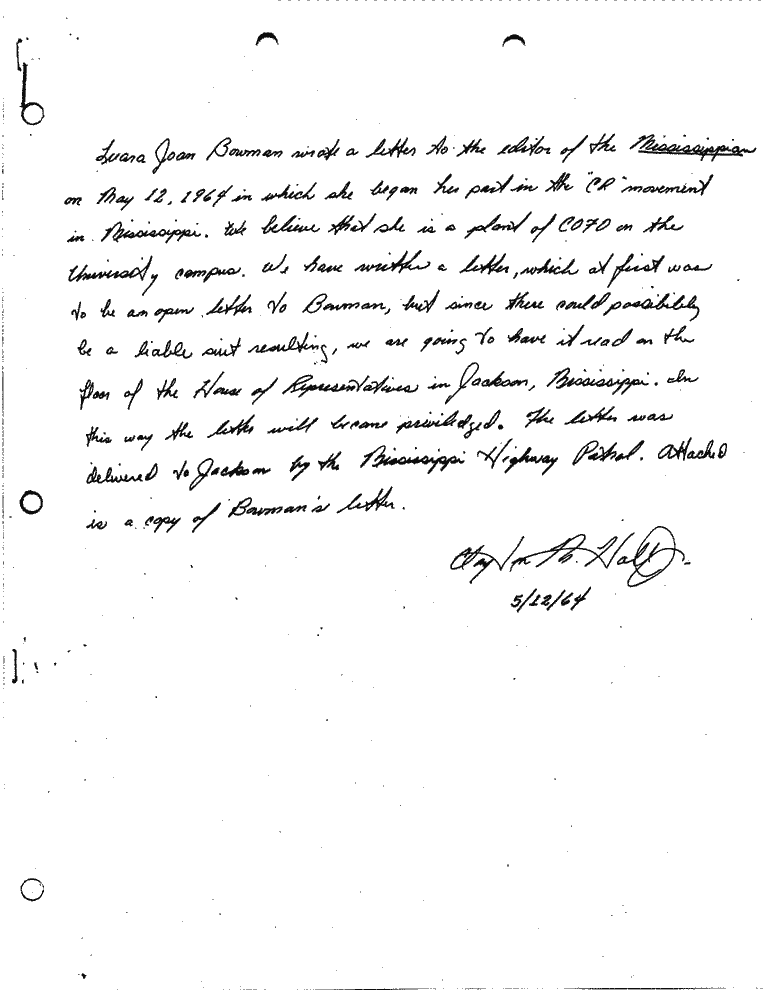 Joan Bowman wrote a letter to the editor of the Mississippian
on May 12, 1964 in which she began her part in the "CR" movement
in Mississippi. We believe that she is a plant of COFO on the
University campus. We have written a letter, which at first was
to be an open letter to Bowman, but since there could possibility
be a liable suit resulting, we are going to have it read on the
floor of the House of Representatives in Jackson, Mississippi. In
this way the letter will become priviledged. The letter was
delivered to Jackson by the Mississippi Highway Patrol. Attached
is a copy of Bowman's letter.
5/12/64